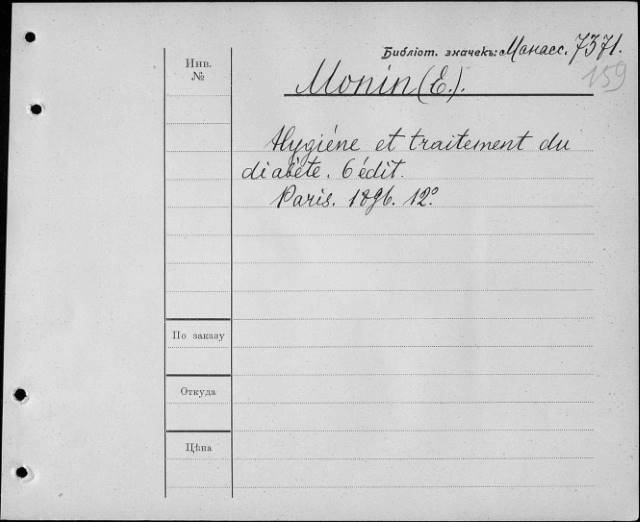 Библіот. значекъ: Манасс. 7371.
159
Инв.
№
Monin (E.).
Hygiéne et traitement du
diabète. 6 édit.
Paris. 1896. 12°
По заказу
Откуда
Цѣна